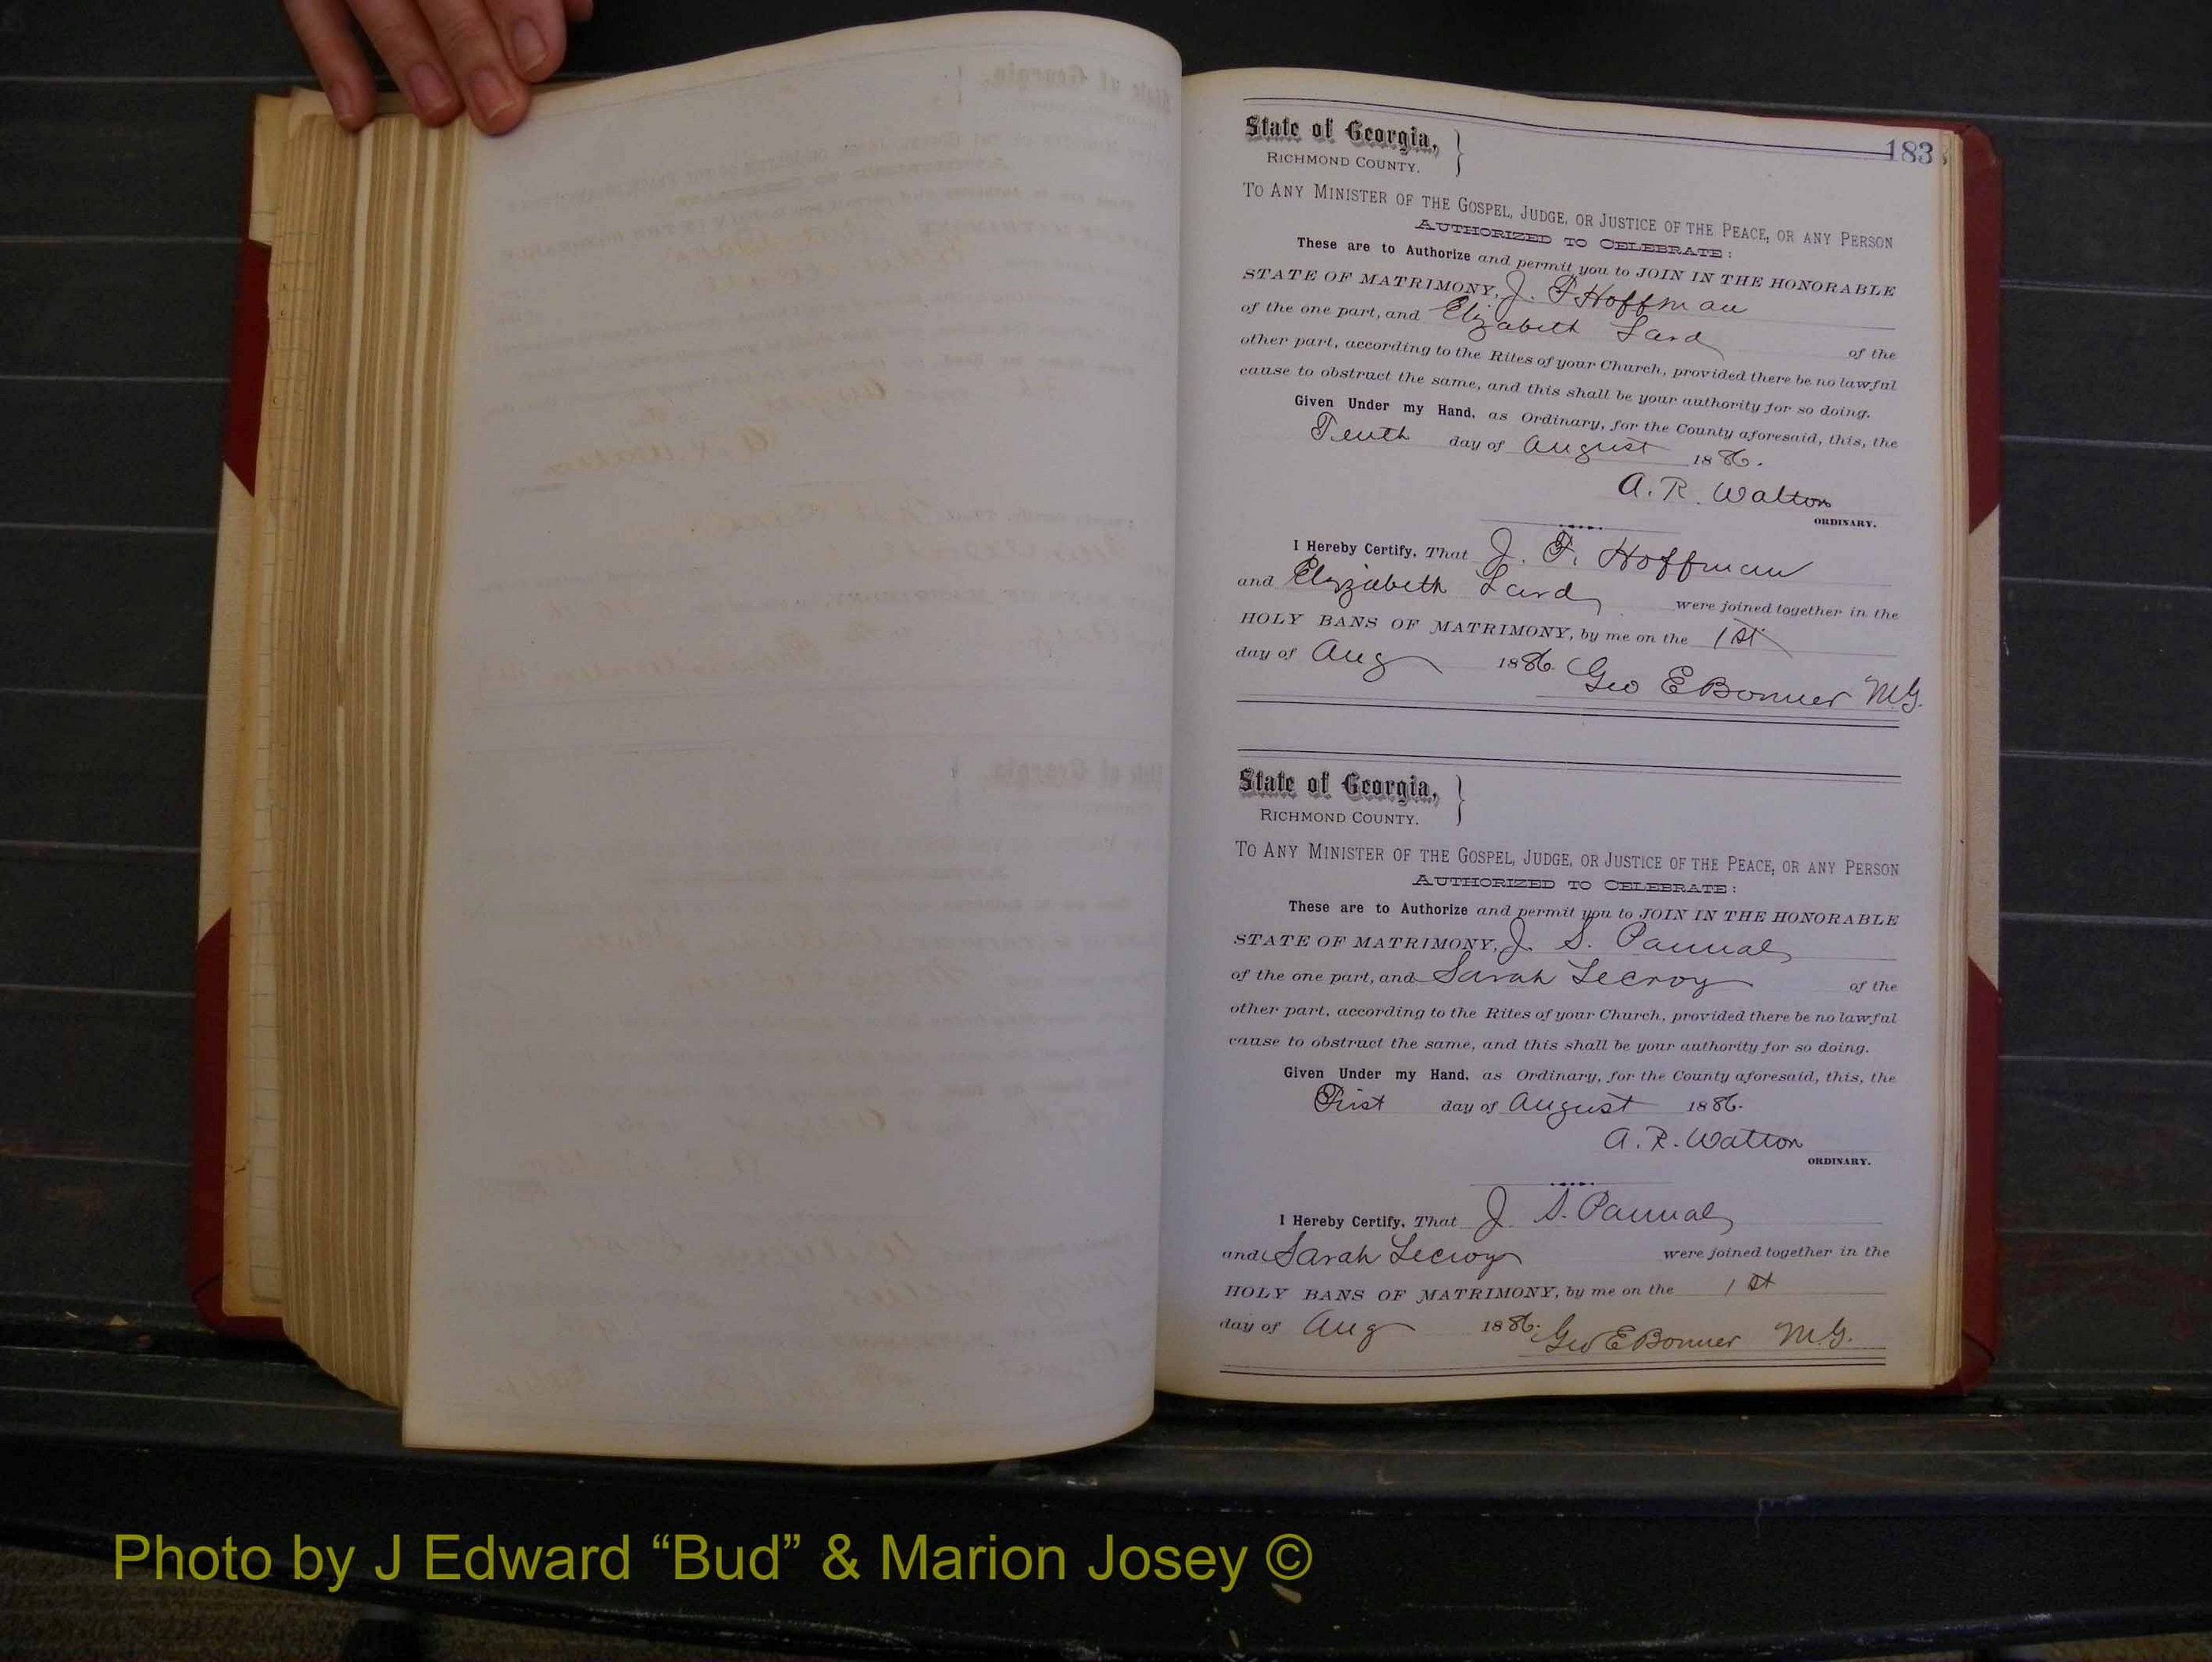 183
State of Georgia,
RICHMOND COUNTY.
TO ANY MINISTER OF THE GOSPEL, JUDGE, OR JUSTICE OF THE PEACE, OR ANY PERSON
AUTHORIZED TO CELEBRATE:
These are to Authorize and permit you to JOIN IN THE HONORABLE
STATE OF MATRIMONY, J. F Hoffman
of the one part, and Elizabeth Lard of the
other part, according to the Rites of your Church, provided there be no lawful
cause to obstruct the same, and this shall be your authority for so doing.
Given Under my Hand, as Ordinary, for the County aforesaid, this, the
Tenth day of August 1886.
A. R. Walton
ORDINARY.
I Hereby Certify, That J. F. Hoffman
and Elizabeth Lard were joined together in the
HOLY BANS OF MATRIMONY, by me on the 1st
day of Aug 1886. Geo E Bonner M.G.
State of Georgia,
RICHMOND COUNTY.
TO ANY MINISTER OF THE GOSPEL, JUDGE, OR JUSTICE OF THE PEACE, OR ANY PERSON
AUTHORIZED TO CELEBRATE:
These are to Authorize and permit you to JOIN IN THE HONORABLE
STATE OF MATRIMONY, J. S. Pannal
of the one part, and Sarah Lecroy of the
other part, according to the Rites of your Church, provided there be no lawful
cause to obstruct the same, and this shall be your authority for so doing.
Given Under my Hand, as Ordinary, for the County aforesaid, this, the
First day of August 1886.
A. R. Walton
ORDINARY.
I Hereby Certify, That J. S. Pannal
and Sarah Lecroy were joined together in the
HOLY BANS OF MATRIMONY, by me on the 1st
day of Aug 1886. Geo E Bonner M.G.
Photo by J Edward “Bud” & Marion Josey ©